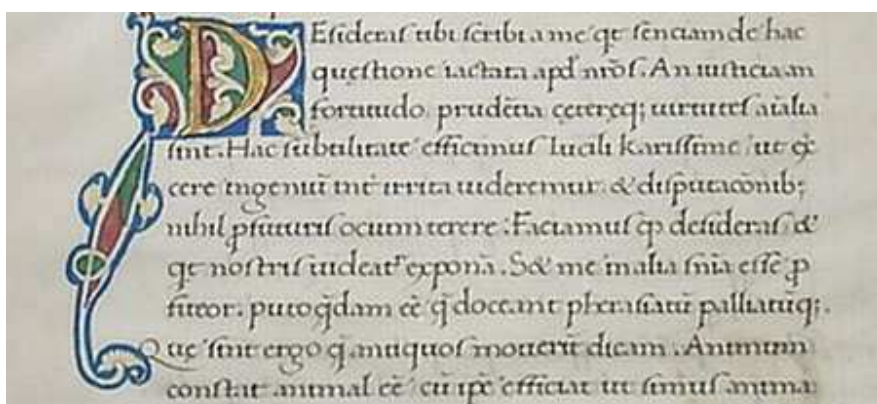 DEsideras tibi scribi a me qͥd senciam de hac
questione iactata apđ nr̄os. An iusticia an
fortitudo. prudētia ceteręq; uirtutes aīalia
sint. Hac subtilitate efficimus lucili karissime ut ex
cere ingeniū int̄ irrita uideremur. & disputac̄onib;
nihil ꝓfuturis ocium terere. Faciamus qđ desideras &
qͥd nostris uideat͛ exponā. S& me in alia s̄nia esse ꝓ
fiteor. puto q̄dam eē q̄ doceant pherasiatū palliatūq;.
Que sint ergo q̄ antiquos mouerīt dicam. Animum
constat animal eē cū ip̄e efficiat ut simus anima